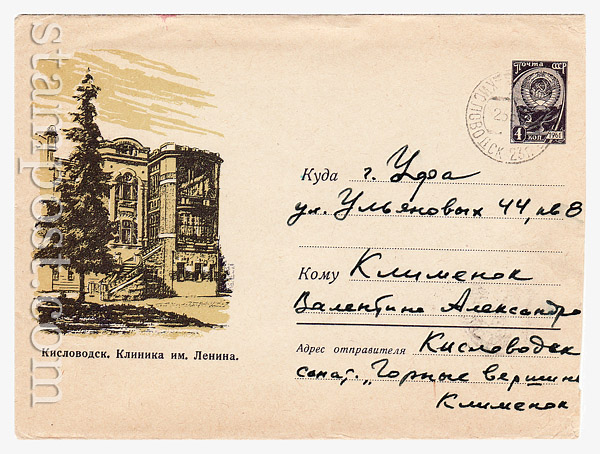 stampost.com
Почта СССР
4 коп. 1961
КИСЛОВОДСК 23
Куда г. Уфа
ул. Ульяновых 44, кв 8
Кому Клименок
Валентине Александро
Кисловодск. Клиника им. Ленина.
Адрес отправителя Кисловодск
санат. „Горные вершин
Клименок